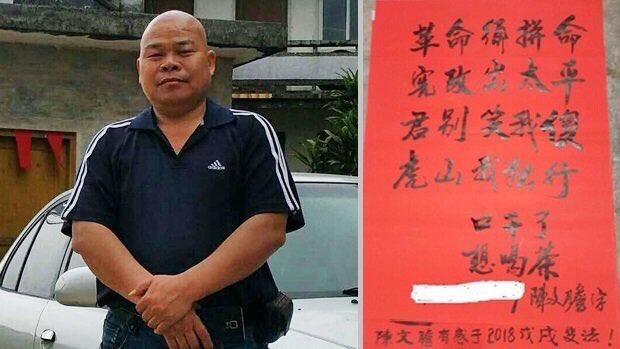 adidas
革命 拼命
宪改出太平
君别笑我傻
虎山我独行
口干了
想喝茶
陳文膽字
陳文膽有感于2018戊戌变法！